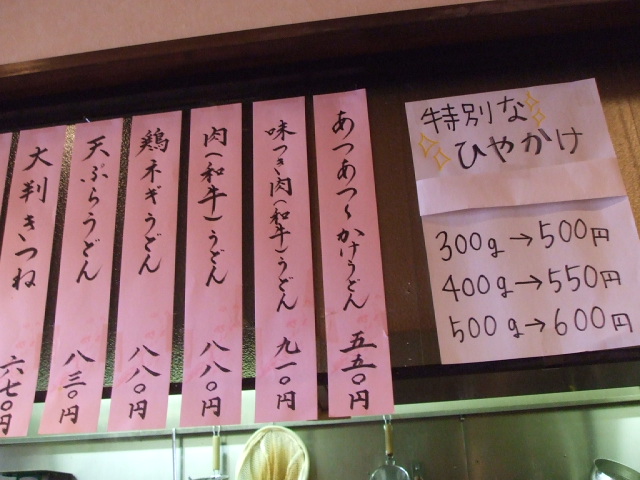 特別な
ひやかけ
300g→500円
400g→550円
500g→600円
あつあつかけうどん 五五〇円
味つき肉(和牛)うどん 九一〇円
肉(和牛)うどん 八八〇円
鶏ネギうどん 八八〇円
天ぷらうどん 八三〇円
大判きつね 六七〇円